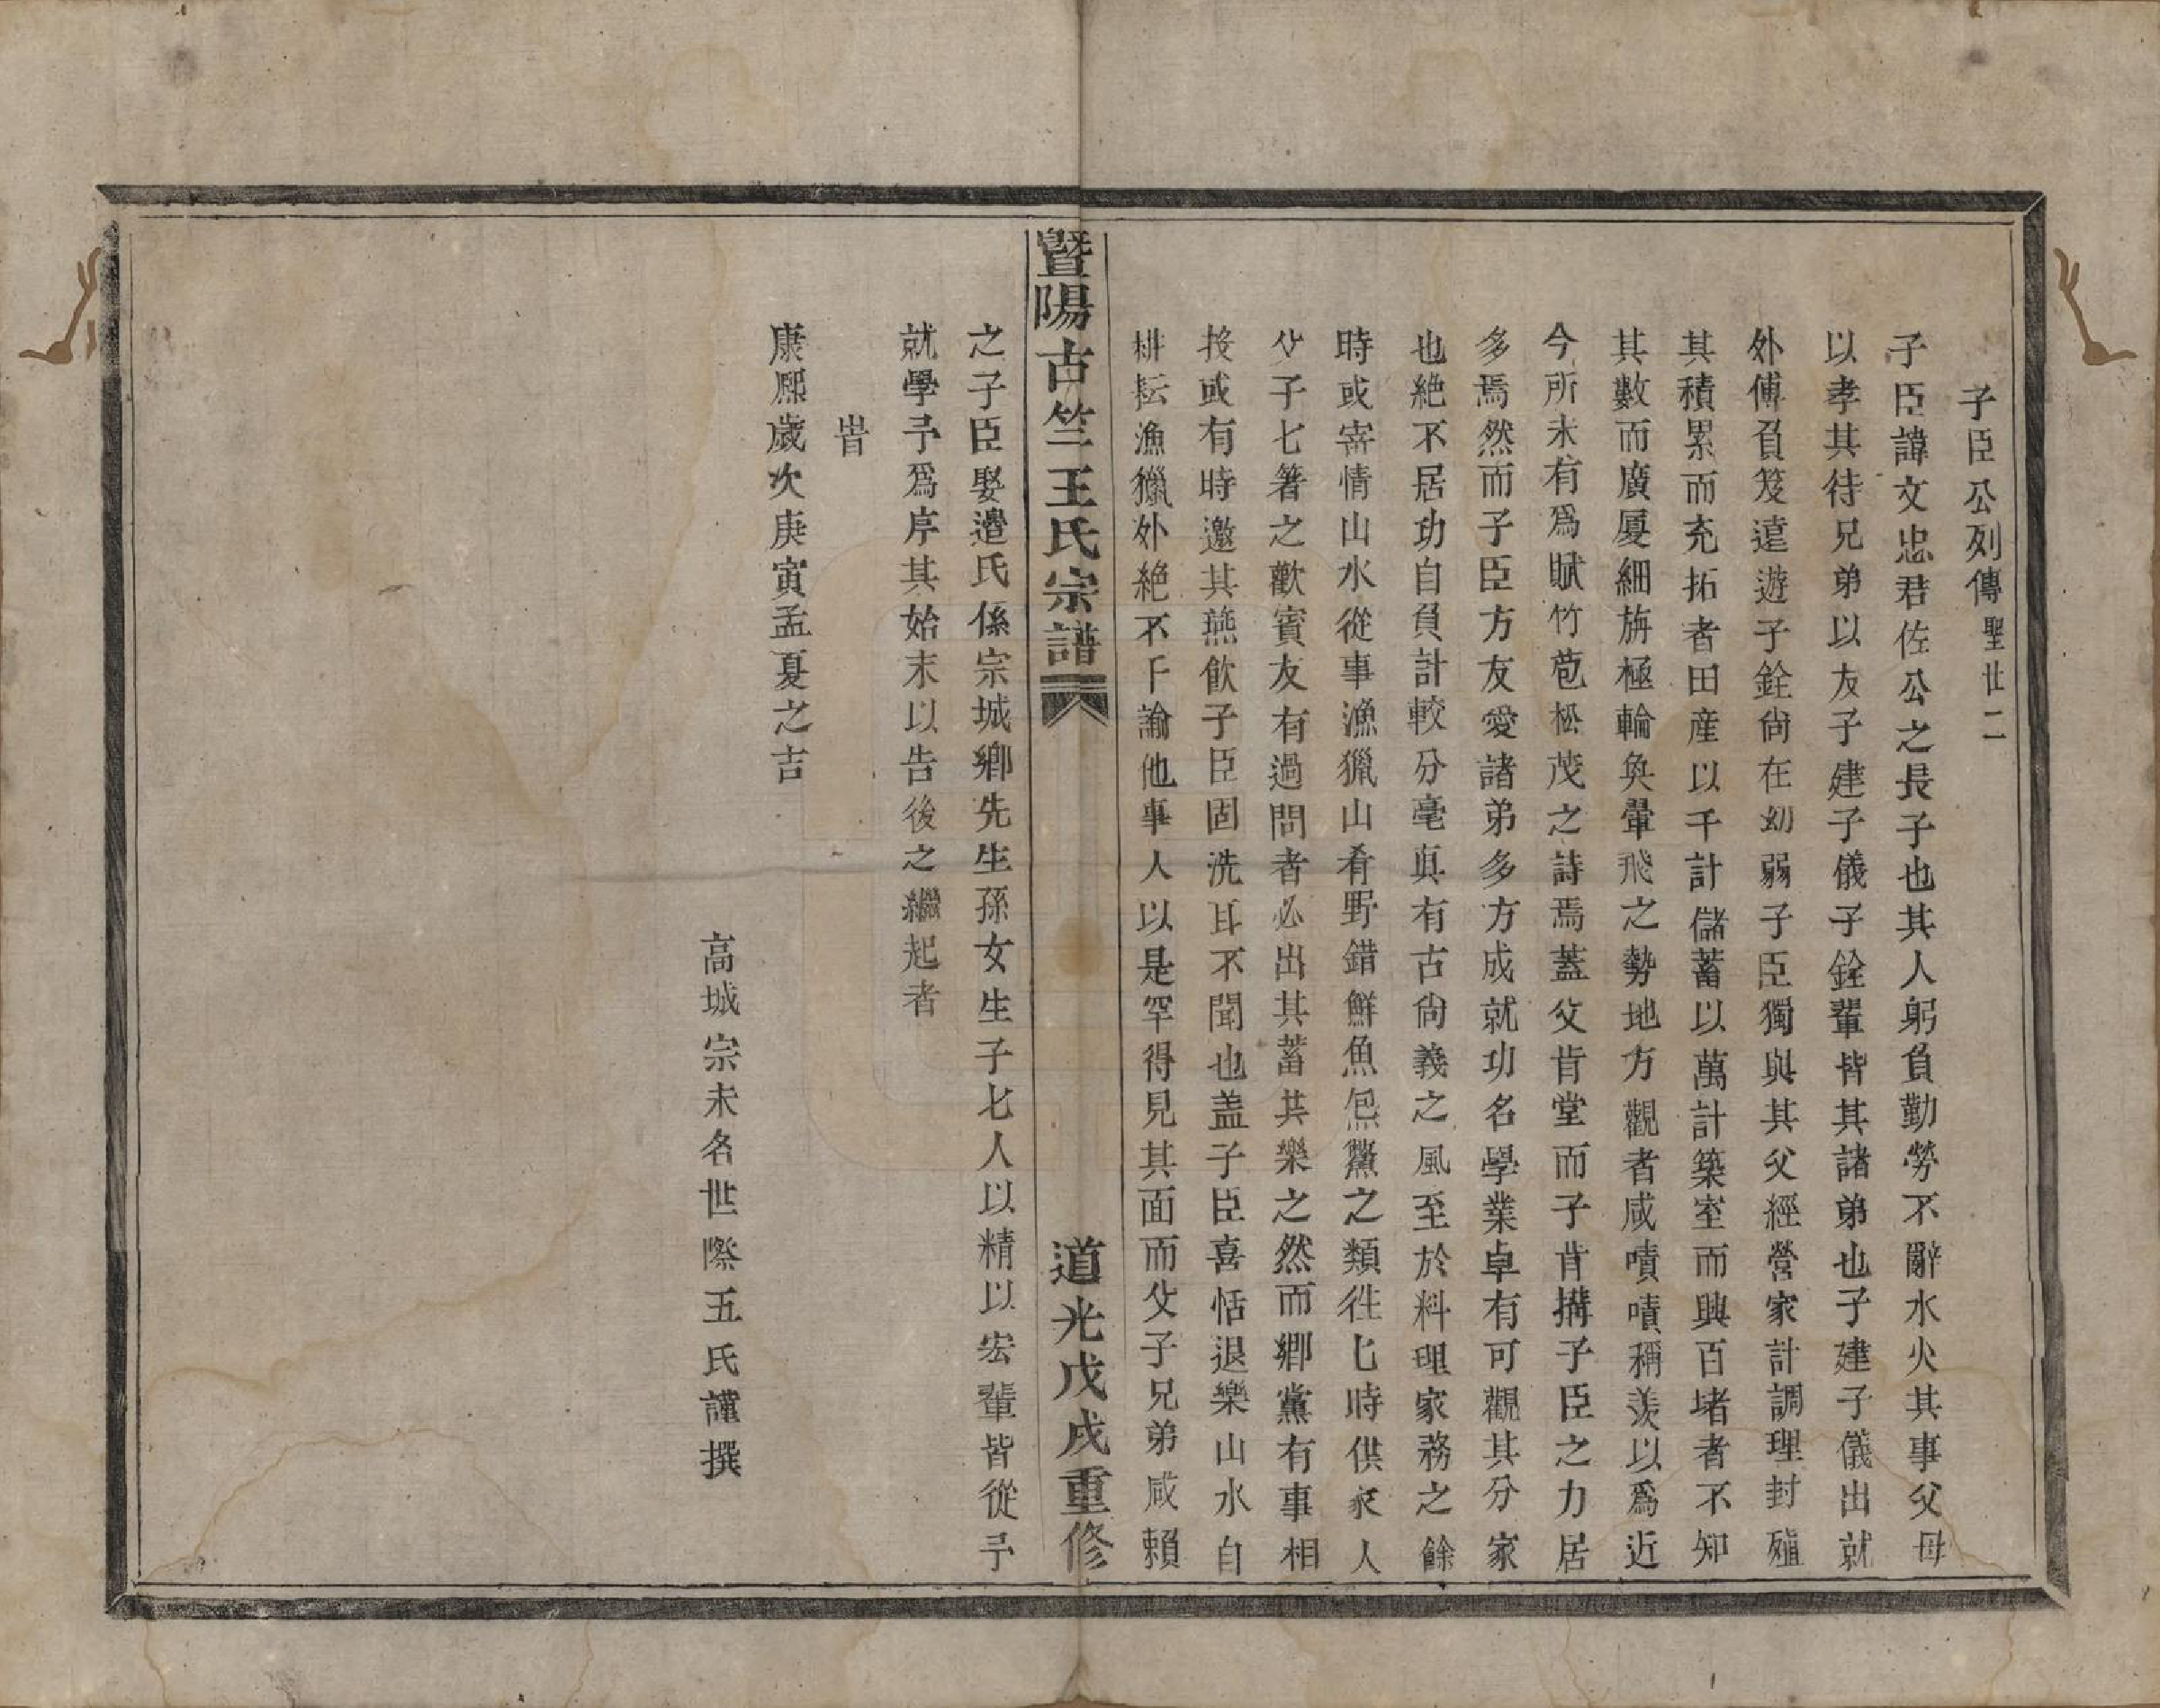 子臣公列傳聖廿二
子臣諱文忠君佐公之長子也其人躬負勤勞不辭水火其事父母
以孝其待兄弟以友子建子儀子銓輩皆其諸弟也子建子儀出就
外傅負笈遠遊子銓尙在幼弱子臣獨與其父經營家計調理封殖
其積累而充拓者田産以千計儲蓄以萬計築室而興百堵者不知
其數而廣厦細旃極輪奐翬飛之勢地方觀者咸嘖嘖稱羨以爲近
今所未有爲賦竹苞松茂之詩焉蓋父肯堂而子肯搆子臣之力居
多焉然而子臣方友愛諸弟多方成就功名學業卓有可觀其分家
也絶不居功自負計較分毫眞有古尙義之風至於料理家務之餘
時或寄情山水從事漁獵山肴野錯鮮魚炰鱉之類徃七時供家人
父子七箸之歡賓友有過問者必出其蓄共樂之然而鄉黨有事相
投或有時邀其燕飲子臣固洗耳不聞也盖子臣喜恬退樂山水自
耕耘漁獵外絶不干諭他事人以是罕得見其面而父子兄弟咸賴
暨陽古竺王氏宗譜
道光戊戌重修
之子臣娶邉氏係宗城鄉先生孫女生子七人以精以宏輩皆從予
就學予爲序其始末以告後之繼起者
旹
康熈歲次庚寅孟夏之吉
高城宗未名世際五氏謹撰